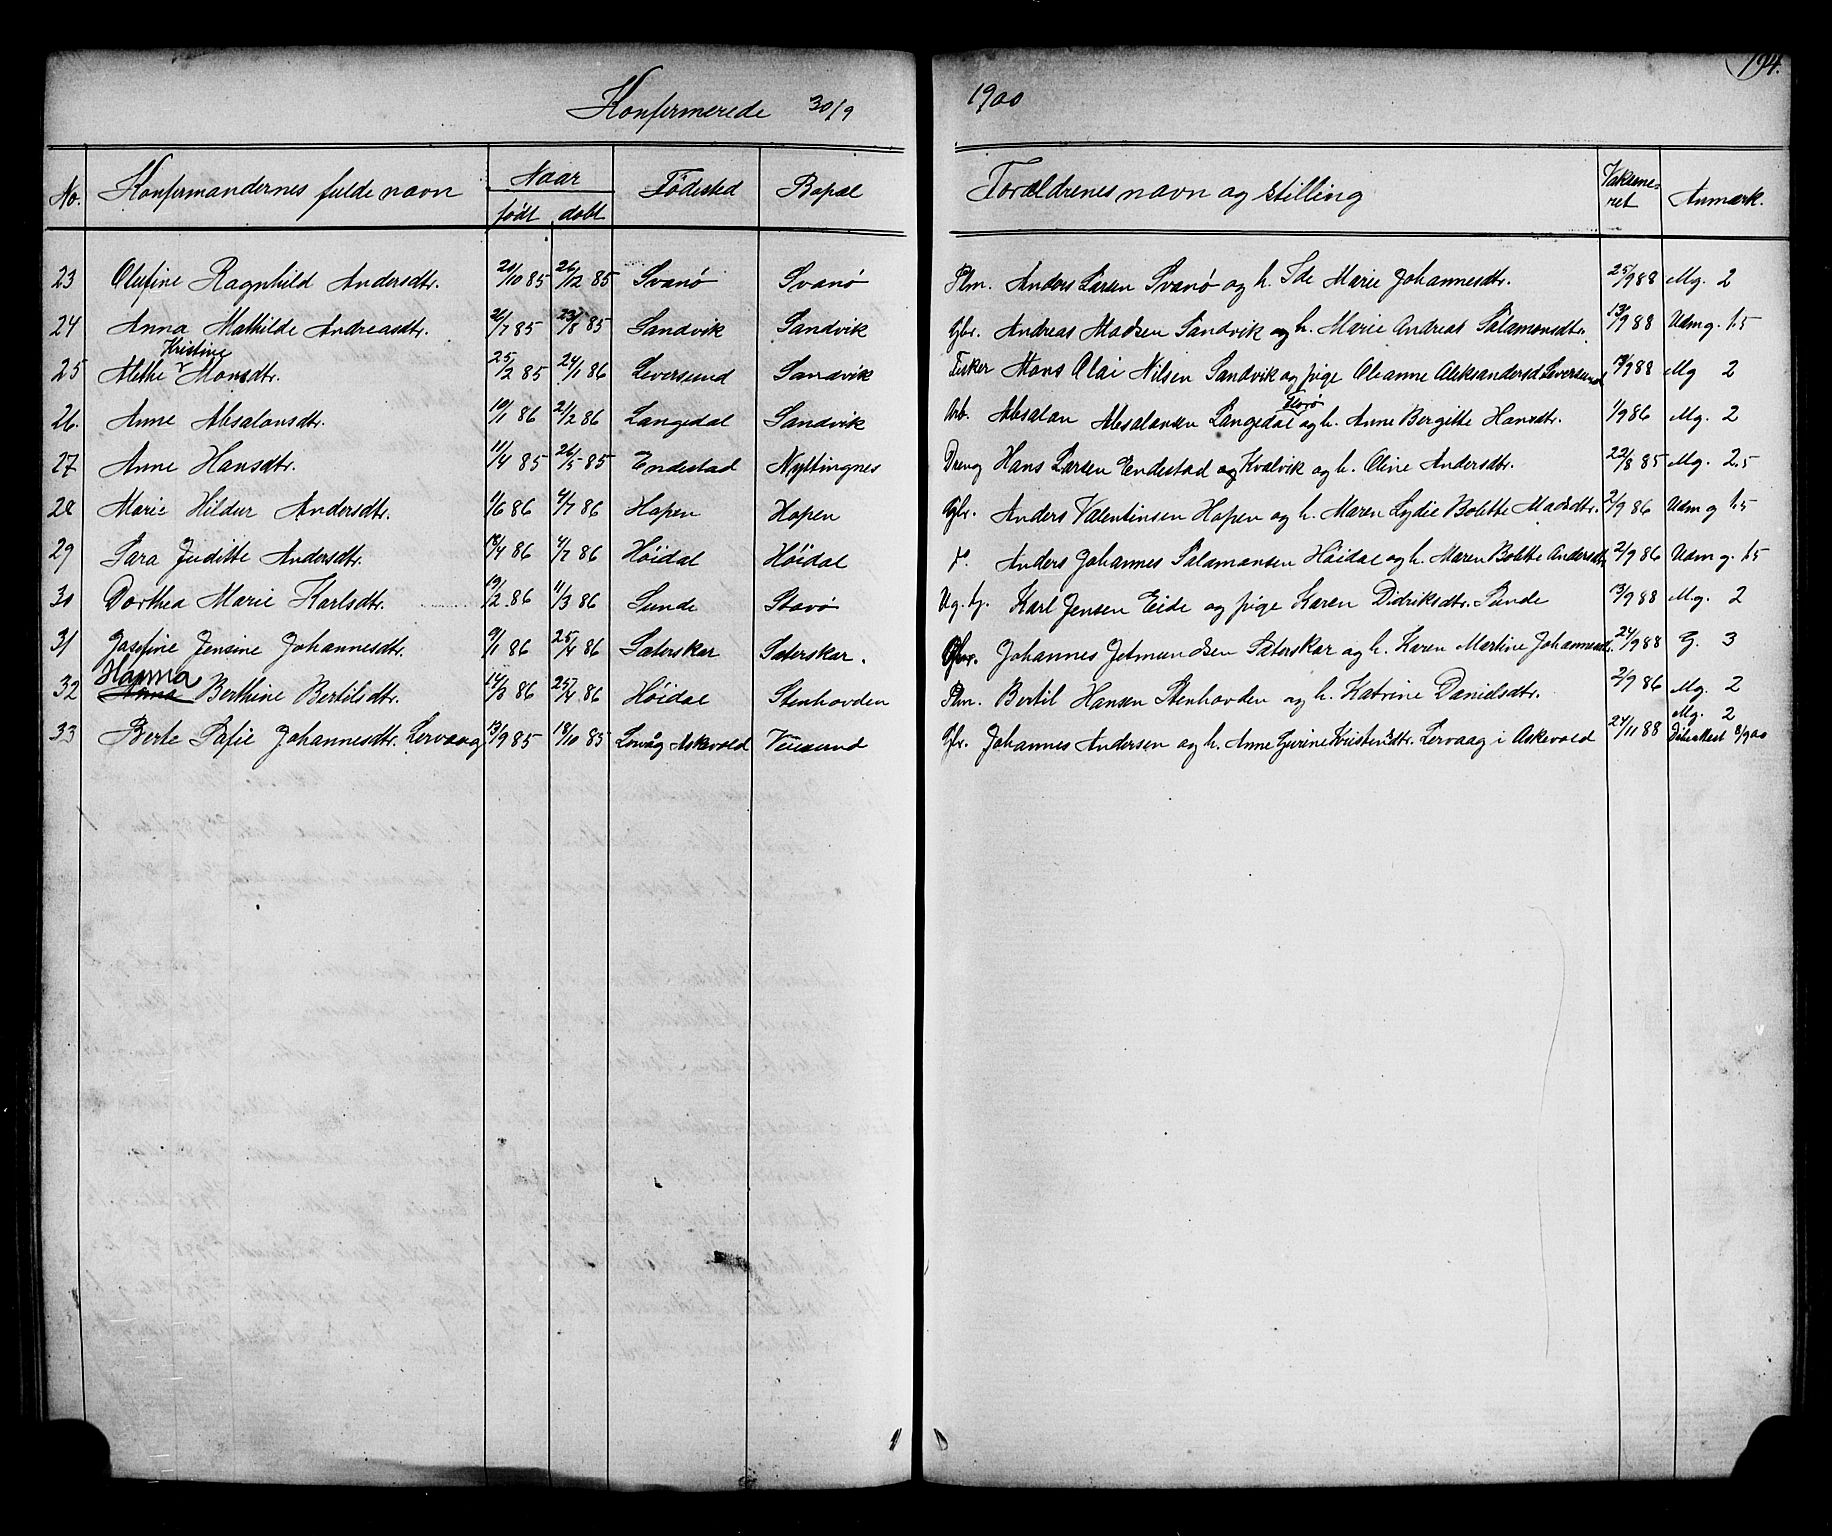 194.
Konfermerede 30/9 1900
No. Konfermandernes fulde navn Naar født døbt Fødested Bopæl Forældrenes navn og stilling Vaksene-ret Anmærk.
23 Olufine Ragnhild Andersdtr. 21/10 85 26/12 85 Svanø Svanø Plm. Anders Larsen Svanø og h. Ide Marie Johannesdtr. 25/9 88 Mg. 2
24 Anna Mathilde Andreasdtr. 2/7 85 23/8 85 Sandvik Sandvik Gbr. Andreas Madsen Sandvik og h. Marie Andrea Salamonsdtr. 13/9 88 Udm g. 1.5
25 Alethe Kristine Monsdtr. 25/2 85 24/1 86 Leversund Sandvik Fisker Mons Olai Nilsen Sandvik og pige Oleanne Aleksandersd Leversund 19/9 88 Mg 2
26. Anne Absalonsdtr. 10/1 86 21/2 86 Langedal Sandvik Arb. Absalon Absalonsen Langedal Florø og h. Anne Bergitte Hansdtr. 1/9 86 Mg. 2
27 Anne Hansdtr. 11/4 85 26/5 85 Endestad Nyttingnes Dreng Hans Larsen Endestad og Kvalvik og h. Oline Andersdtr. 22/8 85 Mg. 2.5
28 Marie Hildur Andersdtr. 1/6 86 4/7 86 Hopen Hopen Gbr. Anders Valentinsen Hopen og h. Maren Lydie Bolette Madsdtr. 2/9 86 Udm g 1.5
29 Sara Juditte Andersdtr. 13/4 86 4/7 86 Høidal Høidal Anders Johannes Salamonsen Høidal og h. Maren Bolette Andersdtr 2/9 86 Udm g. 1.5
30 Dorthea Marie Karlsdtr. 19/2 86 11/3 86 Sunde Stavø Ug. Karl Jensen Eide og pige Karen Didriksdtr. Sunde 13/9 88 Mg. 2
31 Josefine Jensine Johannesdtr. 9/1 86 25/4 86 Sæterskar Sæterskar. Gbr. Johannes Jetmundsen Sæterskar og h. Karen Martine Johannesdtr. 24/9 88 G. 3
32 Anna Hanna Berthine Bertilsdtr. 14/3 86 25/4 86 Høidal Stenhovden Plm. Bertil Hansen Stenhovden og h. Katrine Danielsdtr. 2/9 86 Mg. 2
33 Berte Sofie Johannesdtr. Lervaag 13/9 85 18/10 85 Lervåg Askevold Veiesund Gbr. Johannes Andersen og h. Anne Gurine Kristensdtr. Lervaag i Askevold 24/11 88 Mg. 2 8/9 00